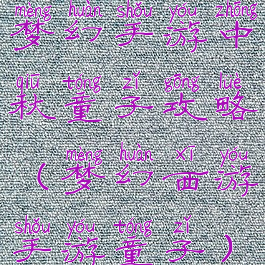 mèng huàn shǒu yóu zhōng
梦幻手游中
qiū tóng zǐ gōng lüè
秋童子攻略
mèng huàn xī yóu
（梦幻西游
shǒu yóu tóng zǐ
手游童子）